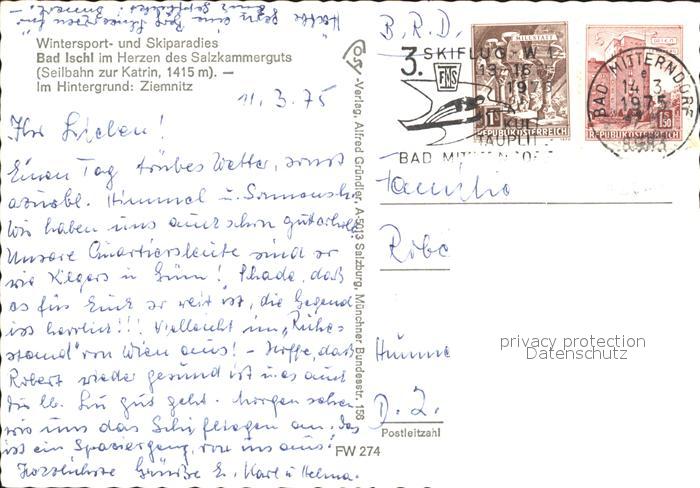 Wintersport- und Skiparadies
Bad Ischl im Herzen des Salzkammerguts
(Seilbahn zur Katrin, 1415 m). —
Im Hintergrund: Ziemnitz
11. 3. 75
Ihr Lieben!
Einen Tag trübes Wetter, sonst
Himmel u. Sonnensch.
Wir haben uns auch schon gut erholt
Unsere Quartiersleute sind so
wie in Schade, daß
es für Euch so weit ist, die Gegend
ist herrlich!!! Vielleicht im „Ruhe=
stand" von Wien aus! - Hoffe, daß
Robert wieder gesund ist u. es auch
gut geht. Morgen sehen
wir uns das Schifliegen an. Das
ist ein Spaziergang von uns aus!
Herzlichste Grüße E. Karl u. Helma.
-Verlag, Alfred Gründler, A-5013 Salzburg, Münchner Bundesstr. 156
FW 274
B. R. D.
3. SKIFLUG-W
FNIS
BAD MITTERNDORF
14. 3.
1975
8983
MILLSTATT
REPUBLIK ÖSTERREICH
1.50
REPUBLIK ÖSTERREICH
Familie
Postleitzahl
privacy protection
Datenschutz